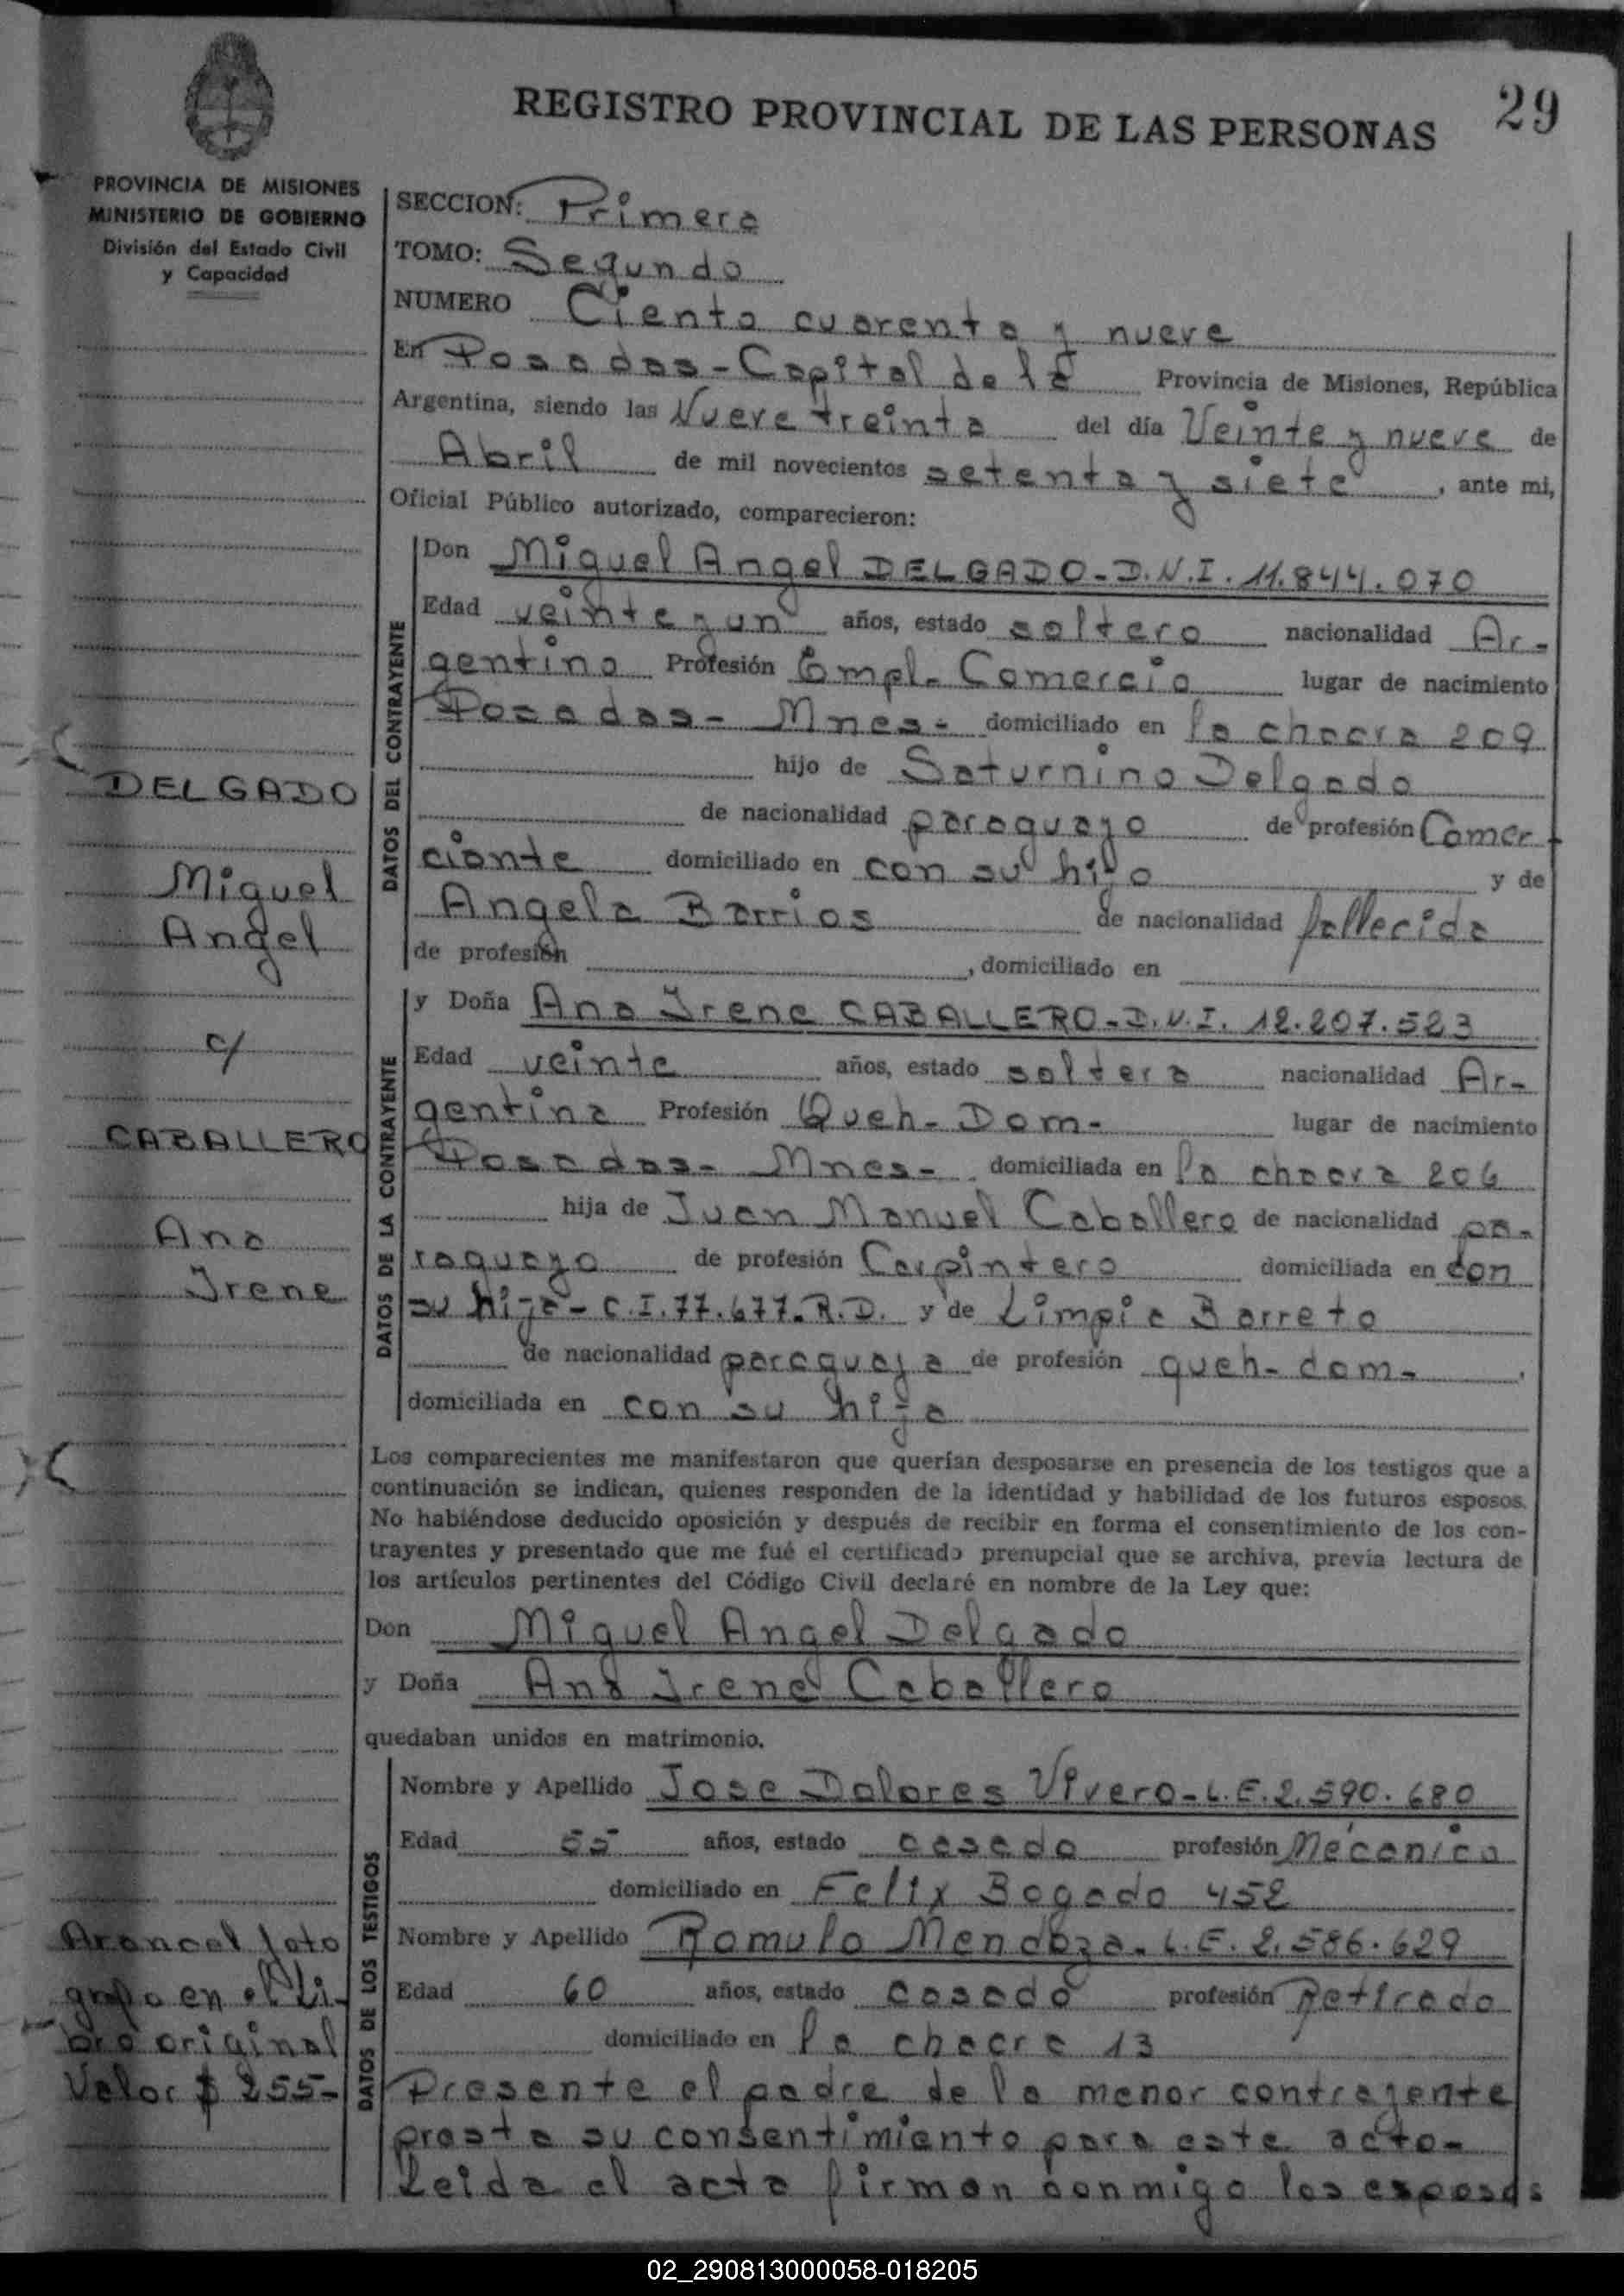 REGISTRO PROVINCIAL DE LAS PERSONAS
29
PROVINCIA DE MISIONES
MINISTERIO DE GOBIERNO
División del Estado Civil
y Capacidad
SECCION: Primera
TOMO: Segundo
NUMERO Ciento cuarenta y nueve
En Posadas - Capital de la Provincia de Misiones, República
Argentina, siendo las Nueve treinta del día Veinte y nueve de
Abril de mil novecientos setenta y siete, ante mi,
Oficial Público autorizado, comparecieron:
DATOS DEL CONTRAYENTE
Don Miguel Angel DELGADO - D.N.I. 11.844.070
Edad veinte y un años, estado soltero nacionalidad Ar-
gentino Profesión Empl. Comercio lugar de nacimiento
Posadas - Mnes - domiciliado en la chacra 209
hijo de Saturnino Delgado
de nacionalidad paraguayo de profesión Comer
ciante domiciliado en con su hijo y de
Angela Barrios de nacionalidad fallecida
de profesión , domiciliado en
DATOS DE LA CONTRAYENTE
y Doña Ana Irene CABALLERO - D.N.I. 12.207.523
Edad veinte años, estado soltera nacionalidad Ar-
gentina Profesión Queh - Dom - lugar de nacimiento
Posadas - Mnes - domiciliada en la chacra 206
hija de Juan Manuel Caballero de nacionalidad pa-
raguayo de profesión Carpintero domiciliada en con
su hija - C.I. 77.677. R.D. y de Limpia Barreto
de nacionalidad paraguaya de profesión queh - dom -,
domiciliada en con su hija
Los comparecientes me manifestaron que querían desposarse en presencia de los testigos que a
continuación se indican, quienes responden de la identidad y habilidad de los futuros esposos.
No habiéndose deducido oposición y después de recibir en forma el consentimiento de los con-
trayentes y presentado que me fué el certificado prenupcial que se archiva, previa lectura de
los artículos pertinentes del Código Civil declaré en nombre de la Ley que:
Don Miguel Angel Delgado
y Doña Ana Irene Caballero
quedaban unidos en matrimonio.
DATOS DE LOS TESTIGOS
Nombre y Apellido Jose Dolores Vivero - L.E. 2.590.680
Edad 55 años, estado casado profesión Mécanico
domiciliado en Felix Bogado 452
Nombre y Apellido Romulo Mendoza - L.E. 2.586.629
Edad 60 años, estado casado profesión Retirado
domiciliado en la chacra 13
Presente el padre de la menor contrayente
presta su consentimiento para este acto -
Leida el acta firman conmigo los esposos
DELGADO
Miguel
Angel
c/
CABALLERO
Ana
Irene
Arancel foto
grafo en el Li-
bro original
Valor $ 255-
02_290813000058-018205